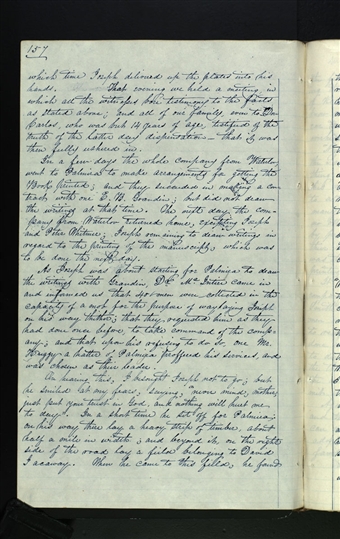 157
which time Joseph delivered up the plates into his
hands. That evening we held a meeting, in
which all the witnesses bore testimony to the facts
as stated above; and all of our family, even to Don
Carlos, who was but 14 years of age, testified of the
truth of the Latter day dispensation — that it was
then fully ushered in.
In a few days the whole company from Waterloo
went to Palmyra to make arrangements for getting the
Book printed; and they succeeded in making a con-
tract with one E. B. Grandin; but did not draw
the writings at that time. The next day the com-
pany from Waterloo returned home, excepting Joseph
and Peter Whitmer; Joseph remaining to draw writings in
regard to the printing of the manuscript, which was
to be done the next day.
As Joseph was about starting for Palmyra to draw
the writings with Grandin, Dr. McIntire came in
and informed us that 40 men were collected in the
capacity of a mob for the purpose of waylaying Joseph
on his way thither; that they requested him as they
had done once before, to take command of the comp-
any; and that upon his refusing to do so, one Mr.
Huzzy a hatter of Palmyra proffered his services, and
was chosen as their leader.
On hearing this, I besought Joseph not to go; but
he smiled at my fears, saying, "never mind, mother,
just put your trust in God, and nothing will hurt me
to day". In a short time he set off for Palmyra;
on his way there lay a heavy strip of timber, about
half a mile in width, and beyond it, on the right
side of the road lay a field belonging to David
Jacaway. When he came to this field, he found